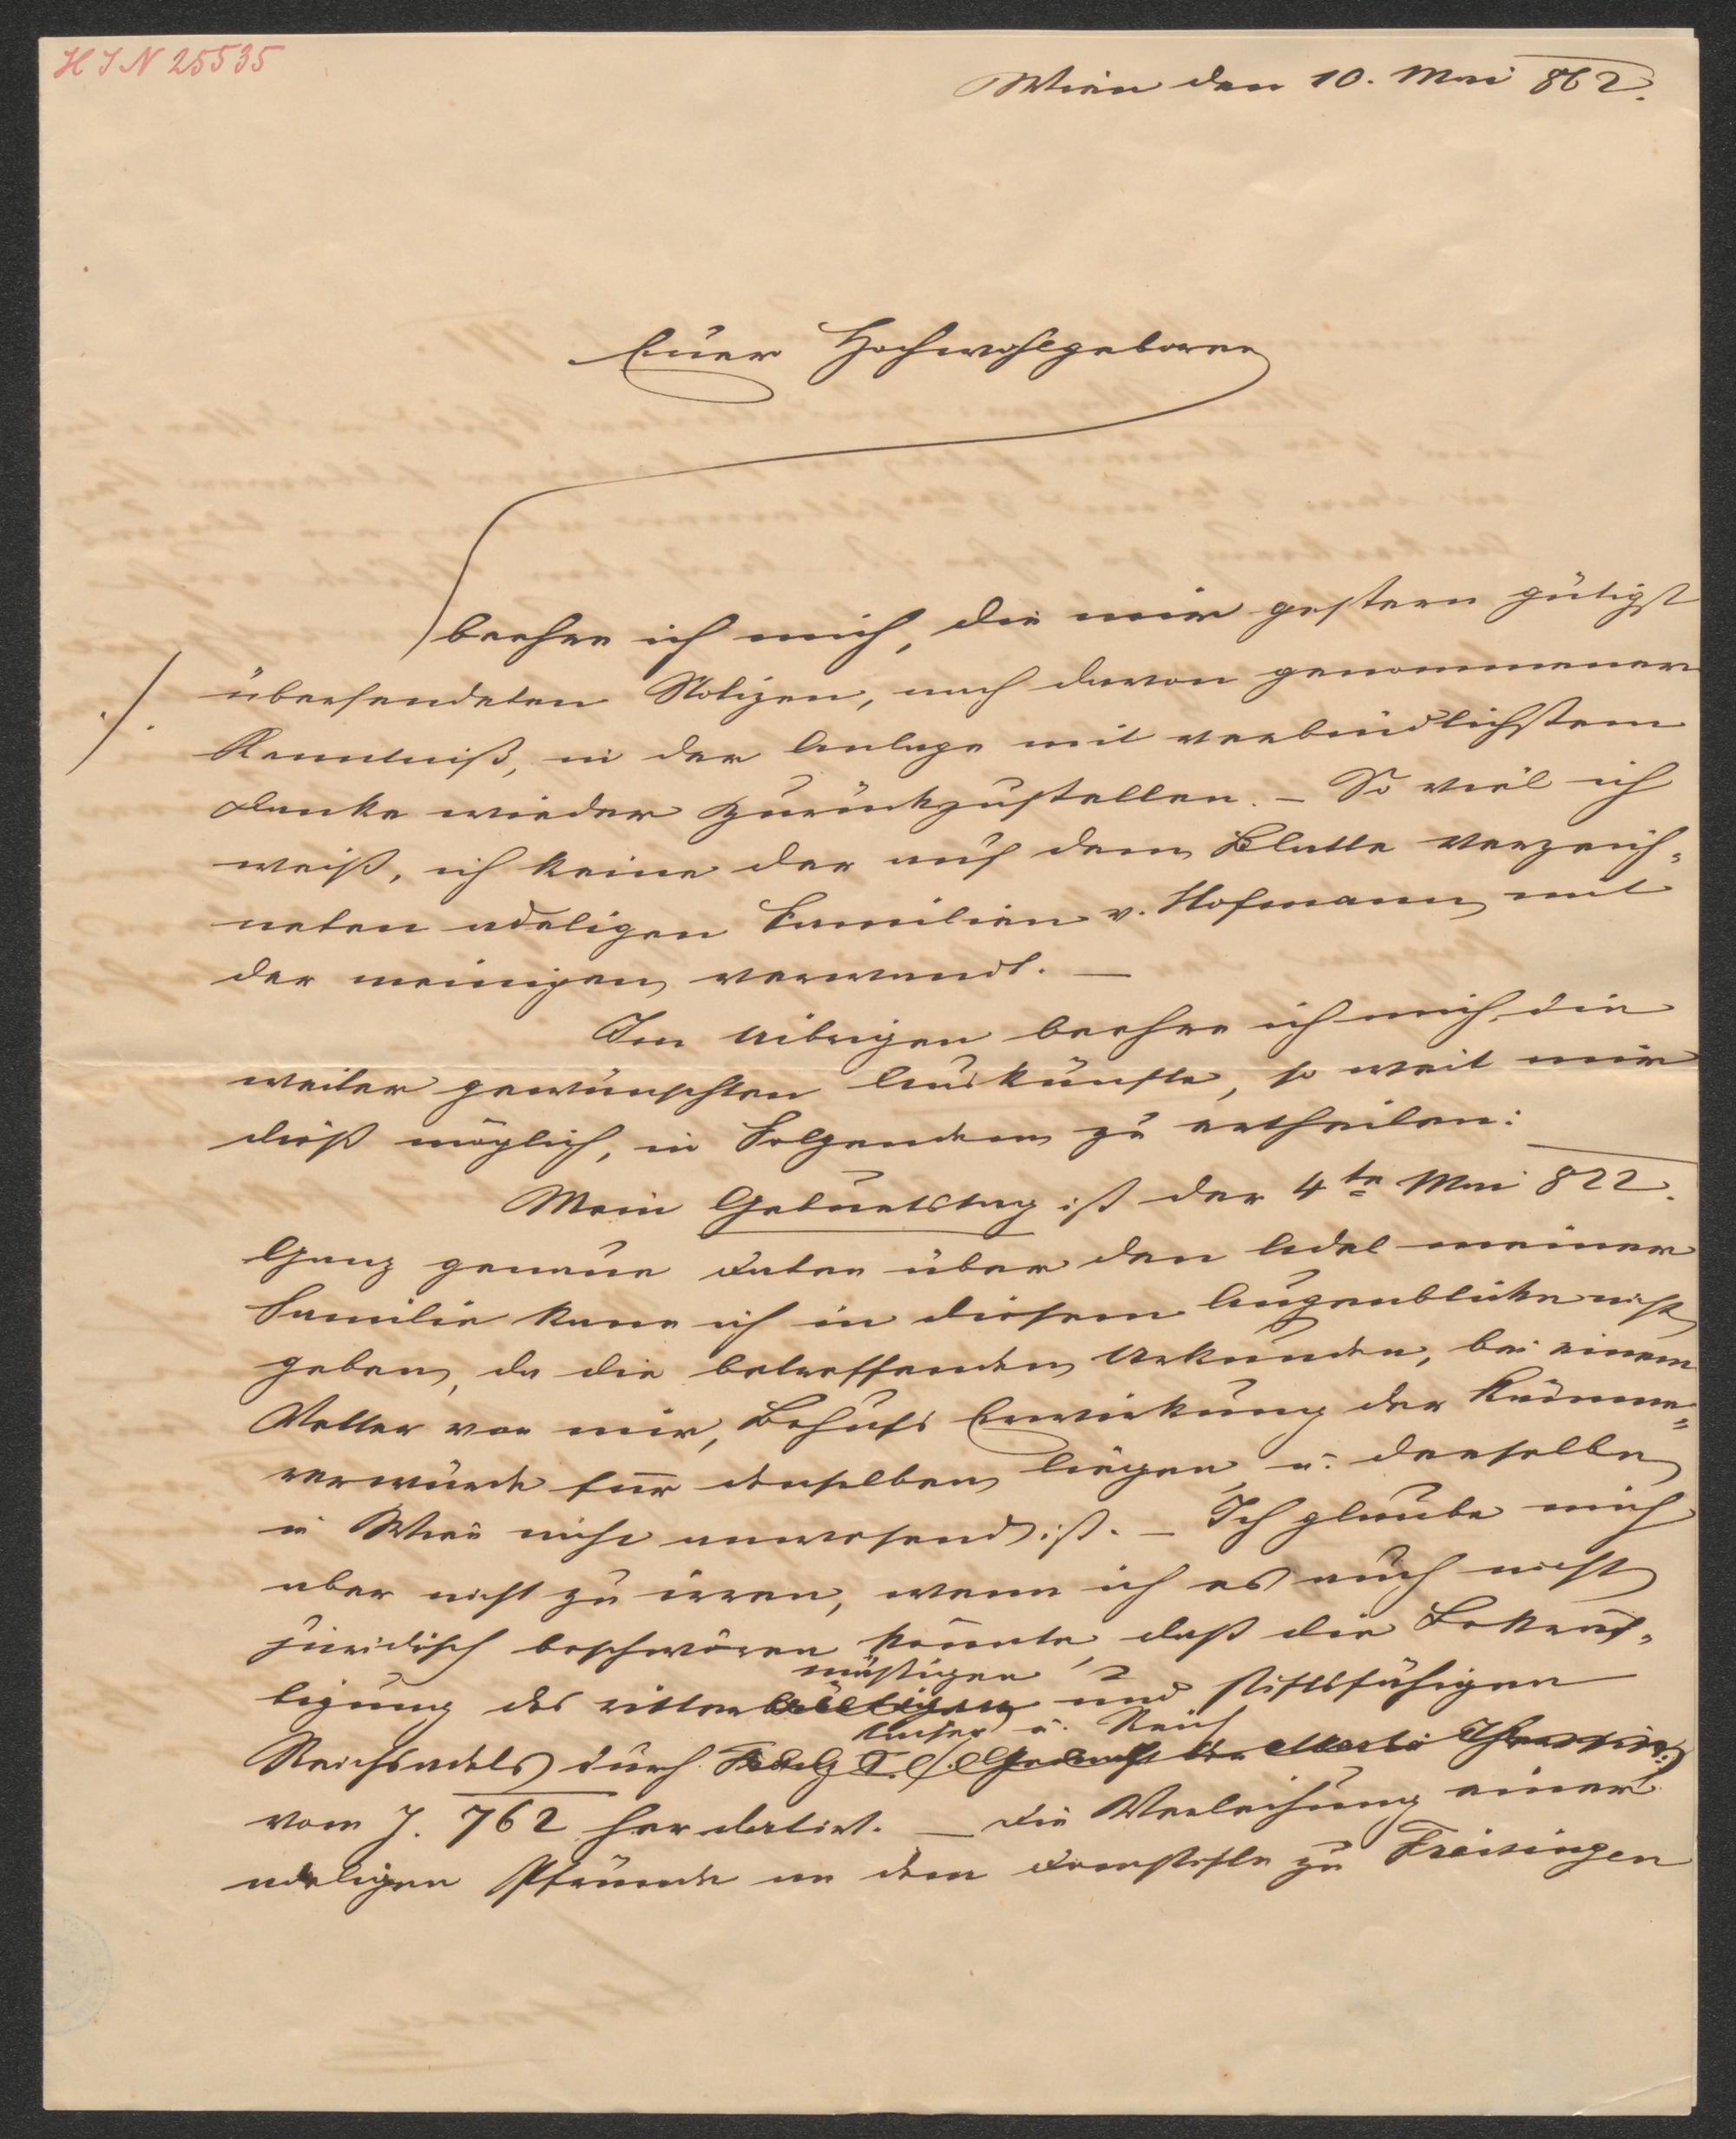 H I N 25535
Wien den 10. Mai 862.
Euer Hochwohlgeboren
beehre ich mich, die mir gestern gütigst
./.
übersendeten Notizen, nach davon genommener
Kenntniß, in der Anlage mit verbindlichstem
Danke wieder zurückzustellen. – So viel ich
weiß, ist keine der auf dem Blatte verzeich-
neten adeligen Familien v. Hofmann mit
der meinigen verwandt. —
Im Uibrigen beehre ich mich, die
weiter gewünschten Auskünfte, so weit mir
dieß möglich, in Folgendem zu ertheilen:
Mein Geburtstag ist der 4te Mai 822.
Ganz genaue Daten über den Adel meiner
Familie kann ich in diesem Augenblicke nicht
geben, da die betreffenden Urkunden, bei einem
Vetter von mir, Behufs Erwirkung der Kämme-
rerwürde für denselben liegen u. derselbe
in Wien nicht anwesend ist. – Ich glaube mich
aber nicht zu irren, wenn ich es auch nicht
juridisch beschwören könnte, daß die Bekräf-
mäßigen
tigung des ritter und stiftsfähigen
Kaiser u. Reich
Reichsadels durch
vom J. 762 her datirt. — Die Verleihung einer
adeligen Pfründe an dem Domstifte zu Freisingen